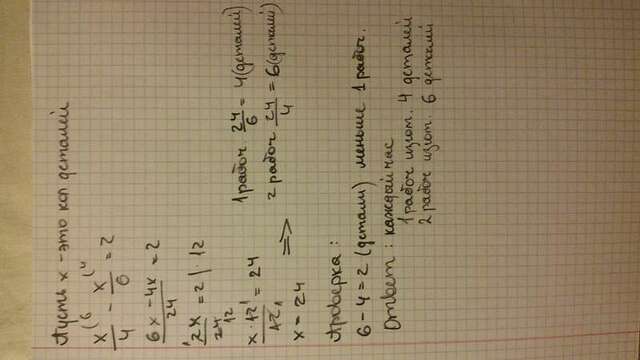 Пусть x - это кол деталей
x(6 x(4
x/4 - x/6 = 2
6x - 4x/24 = 2
2x/24 = 2 | · 12
12
x · 12/12 = 24
x = 24
=>
1 рабоч 24/6 = 4(деталей)
2 рабоч 24/4 = 6(деталей)
Проверка :
6 - 4 = 2 (детали) меньше 1 рабоч.
Ответ : каждый час
1 рабоч изгот. 4 деталей
2 рабоч изгот. 6 деталей